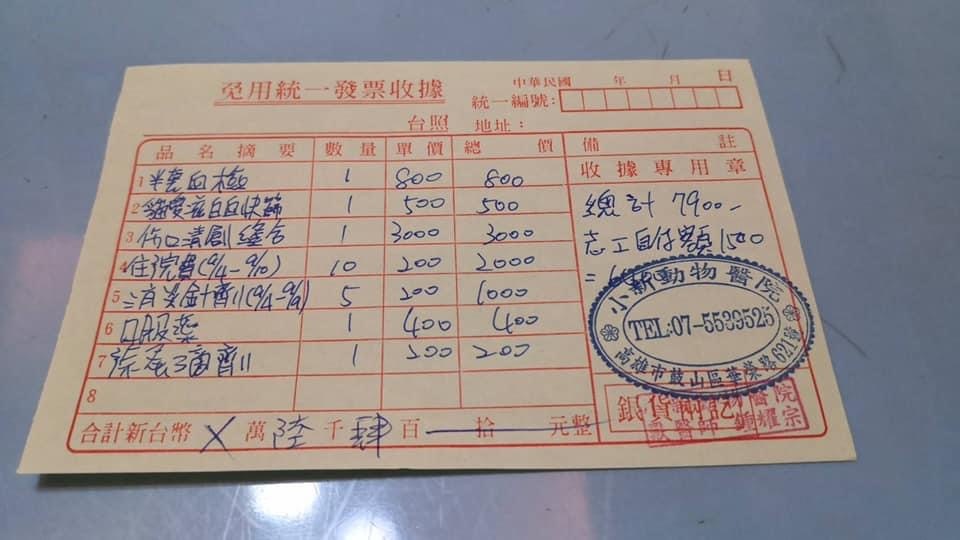 免用統一發票收據
中華民國 年 月 日
統一編號:
台照 地址:
品名摘要 數量 單價 總價 備註
1 半套血檢 1 800 800
2 貓愛滋白血快篩 1 500 500
3 傷口清創縫合 1 3000 3000
4 住院費(9/4-9/10) 10 200 2000
5 消炎針劑(9/4-9/9) 5 200 1000
6 口服藥 1 400 400
7 1 200 200
8
合計新台幣 X 萬 陸 千 肆 百 一 拾 元整
收據專用章
總計 7900-
志工自付額 1500
=
小新動物醫院
TEL:07-5539525
高雄市鼓山區華榮路621號
銀貨兩訖
醫院
獸醫師 鍾耀宗